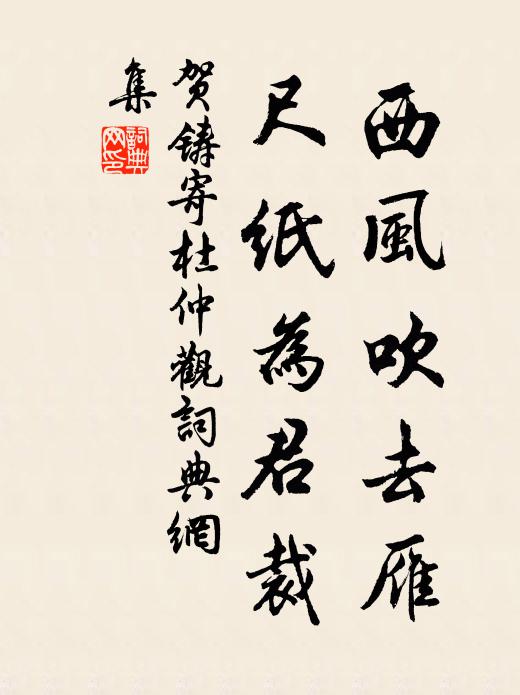 西風吹去雁
尺紙為君裁
賀鑄寄杜仲觀詞典網
集
詞典
網印